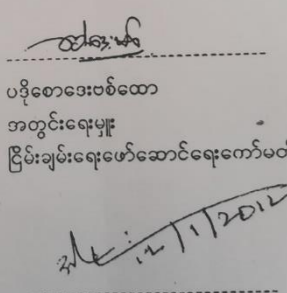 ပဒိုစောဒေးဗစ်ထော
အတွင်းရေးမှူး
ငြိမ်းချမ်းရေးဖော်ဆောင်ရေးကော်မတ
12/1/2012